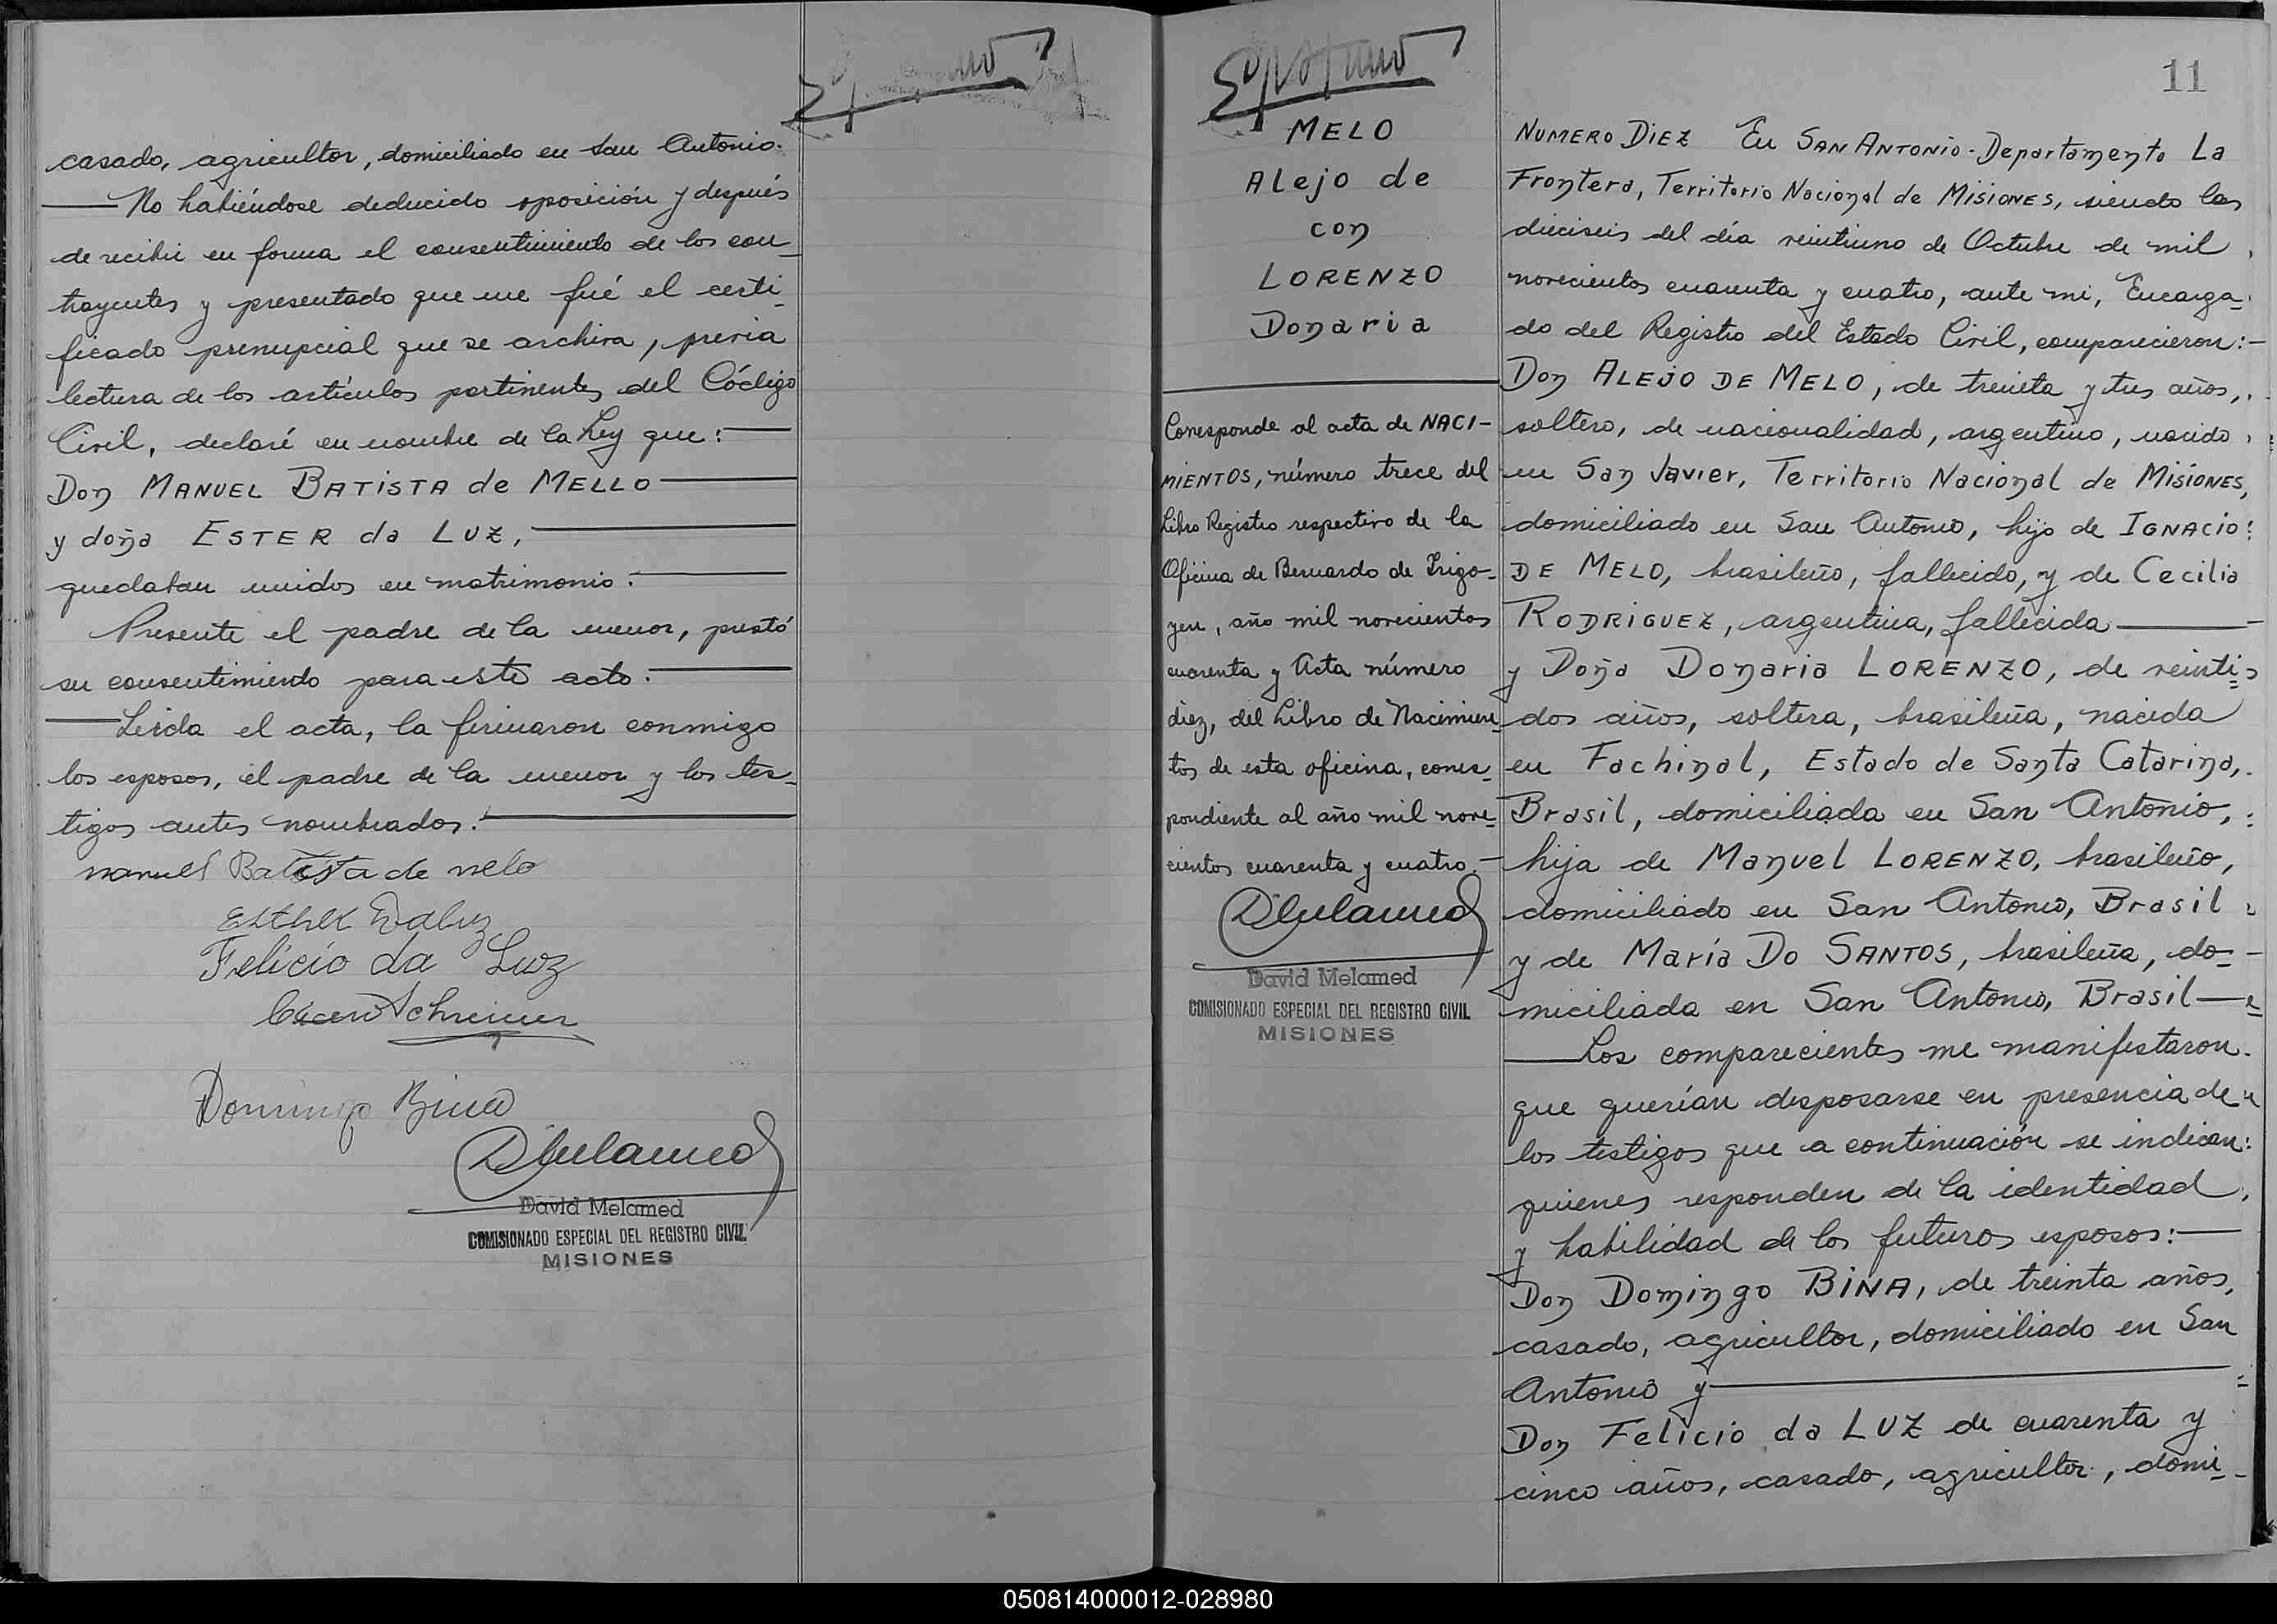 casado, agricultor, domiciliado en San Antonio.
No habiéndose deducido oposición y después
de recibir en forma el consentimiento de los con-
trayentes y presentado que me fué el certi-
ficado prenupcial que se archiva, previa
lectura de los artículos pertinentes del Código
Civil, declaré en nombre de la Ley que:
Don MANUEL BATISTA de MELLO
y doña ESTER da LUZ,
quedaban unidos en matrimonio.
Presente el padre de la menor, prestó
su consentimiento para este acto.
Leida el acta, la firmaron conmigo
los esposos, el padre de la menor y los tes-
tigos antes nombrados.
manuel Batista de melo
Esther Daluz
Felicio da Luz
Schreiner
Domingo Bina
DMelamed
David Melamed
COMISIONADO ESPECIAL DEL REGISTRO CIVIL
MISIONES
MELO
Alejo de
con
LORENZO
Donaria
Corresponde al acta de NACI-
MIENTOS, número trece del
Libro Registro respectivo de la
Oficina de Bernardo de Irigo-
yen, año mil novecientos
cuarenta y Acta número
diez, del Libro de Nacimien-
tos de esta oficina, corres-
pondiente al año mil nove-
cientos cuarenta y cuatro.-
DMelamed
David Melamed
COMISIONADO ESPECIAL DEL REGISTRO CIVIL
MISIONES
11
NUMERO DIEZ En SAN ANTONIO - Departamento La
Frontera, Territorio Nacional de MISIONES, siendo las
dieciseis del día veintiuno de Octubre de mil
novecientos cuarenta y cuatro, ante mi, Encarga-
do del Registro del Estado Civil, comparecieron:-
Don ALEJO DE MELO, de treinta y tres años,
soltero, de nacionalidad, argentino, nacido
en San Javier, Territorio Nacional de MISIONES,
domiciliado en San Antonio, hijo de IGNACIO
DE MELO, brasileño, fallecido, y de Cecilia
RODRIGUEZ, argentina, fallecida
y Doña Donaria LORENZO, de veinti-
dos años, soltera, brasileña, nacida
en Fachinal, Estado de Santa Catarina,
Brasil, domiciliada en San Antonio,
hija de Manuel LORENZO, brasileño,
domiciliado en San Antonio, Brasil
y de María Do SANTOS, brasileña, do-
miciliada en San Antonio, Brasil
Los comparecientes me manifestaron
que querían desposarse en presencia de
los testigos que a continuación se indican:
quienes responden de la identidad
y habilidad de los futuros esposos:
Don Domingo BINA, de treinta años,
casado, agricultor, domiciliado en San
Antonio y
Don Felicio da LUZ de cuarenta y
cinco años, casado, agricultor, domi-
050814000012-028980